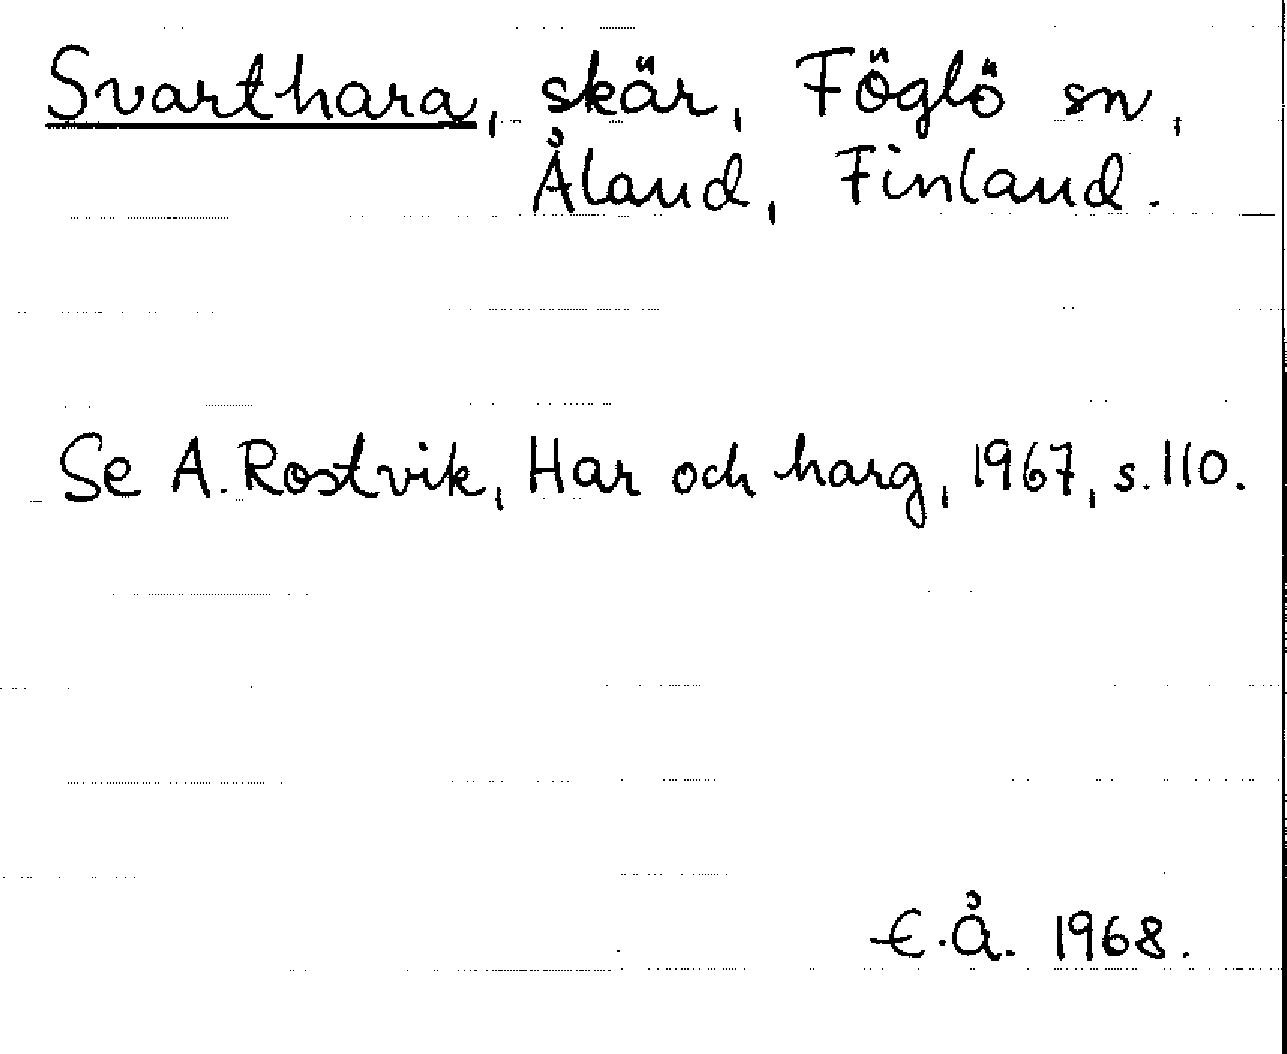 Svarthara, skär, Föglö sn,
Åland, Finland.
Se A. Rostvik, Har och harg, 1967, s. 110.
E.Å. 1968.